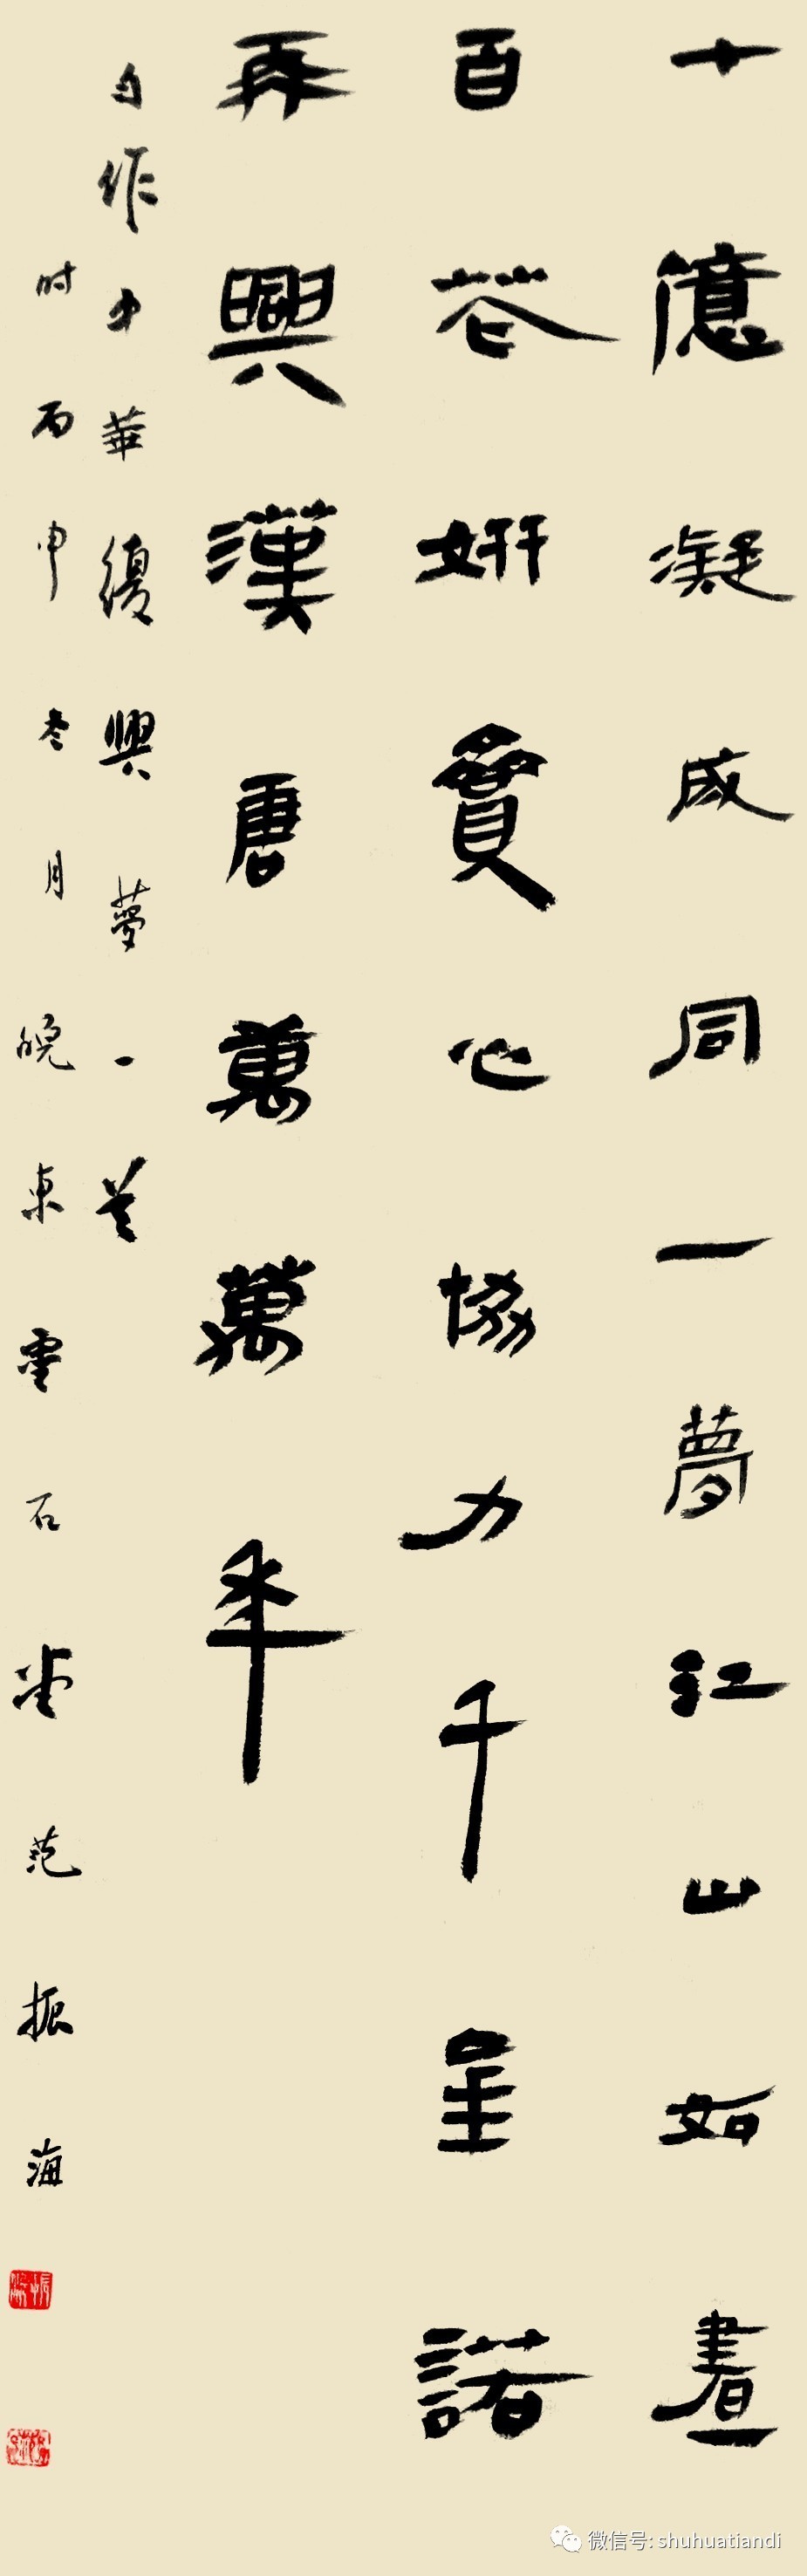 十億凝成同一夢江山如畫
百花妍實心協力千呈諾
再興漢唐萬萬年
自作中華復興夢一首
时丙申冬月晚東雲石堂范振海
微信号: shuhuatiandi